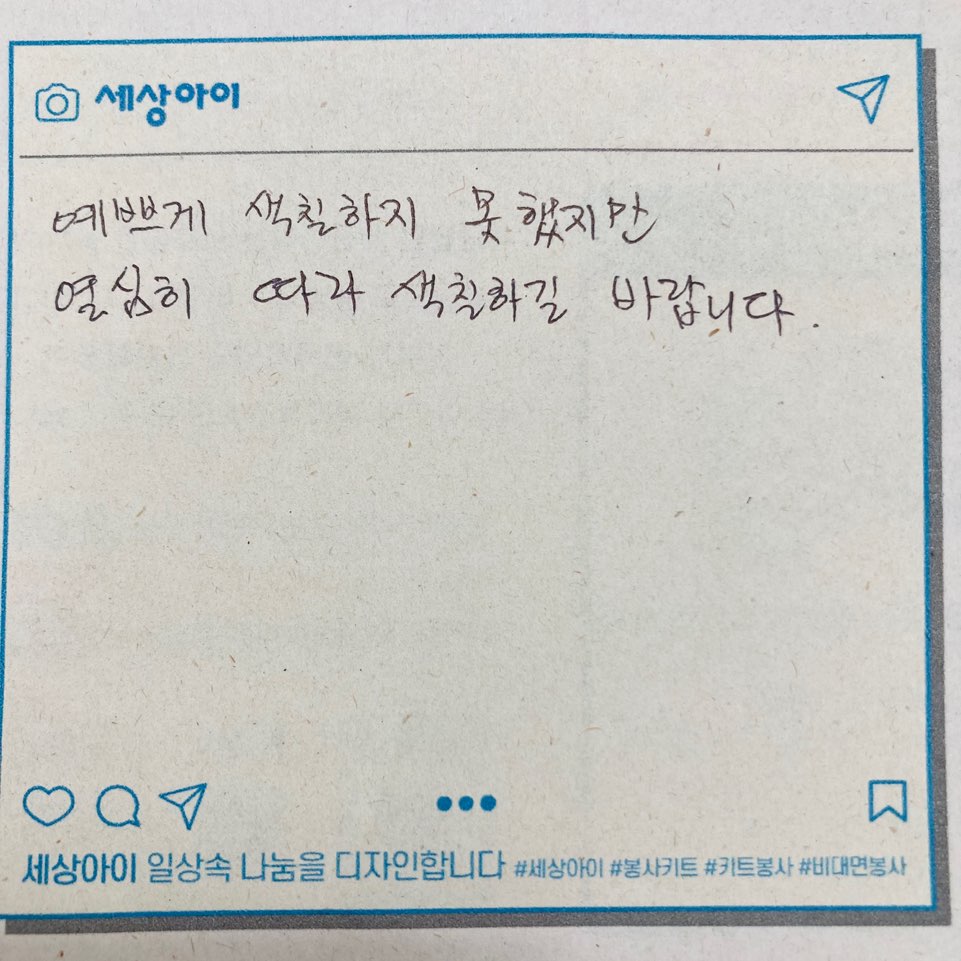 세상아이
예쁘게 색칠하지 못했지만
열심히 따라 색칠하길 바랍니다.
세상아이 일상속 나눔을 디자인합니다 #세상아이 #봉사키트 #키트봉사 #비대면봉사